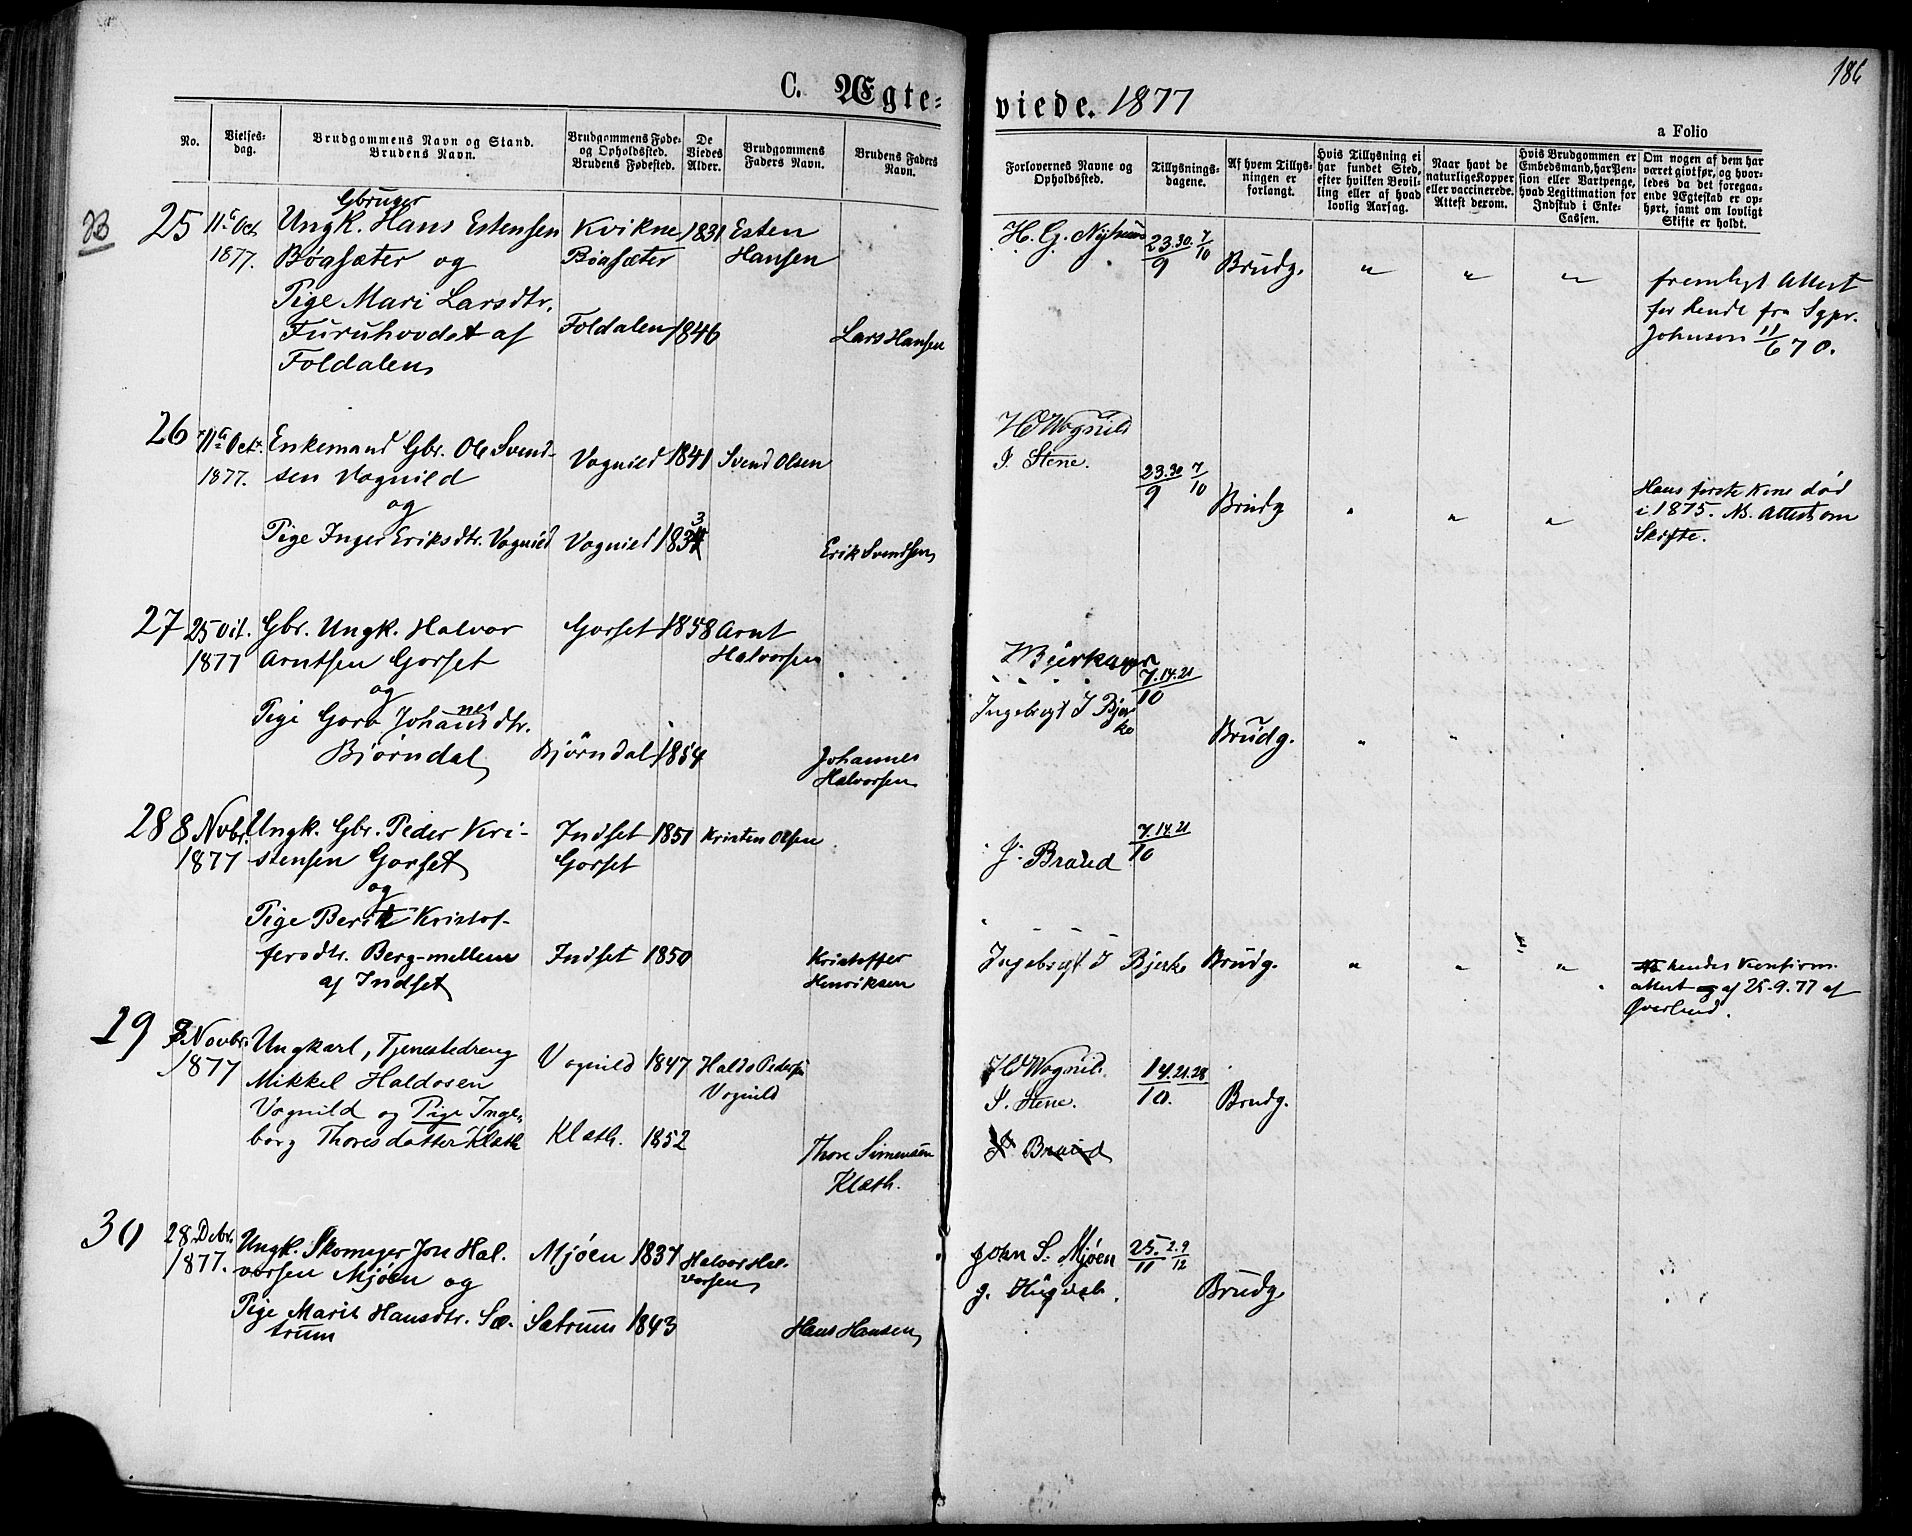 186
C. Ægte-
viede. 1877
a Folio
No.
Vielses-
dag.
Brudgommens Navn og Stand.
Brudens Navn.
Brudgommens Føde-
og Opholdssted.
Brudens Fødested.
De
Viedes
Alder.
Brudgommens
Faders Navn.
Brudens Faders
Navn.
Forlovernes Navne og
Opholdssted.
Tillysnings-
dagene.
Af hvem Tillys-
ningen er
forlangt.
Hvis Tillysning ei
har fundet Sted,
efter hvilken Bevil-
ling eller af hvad
lovlig Aarsag.
Naar havt de
naturlige Kopper
eller vaccinerede.
Attest derom.
Hvis Brudgommen er
Embedsmand, har Pen-
sion eller Vartpenge,
hvad Legitimation for
Indskud i Enke-
Cassen.
Om nogen af dem har
været givt før, og hvor-
ledes da det foregaa-
ende Ægteskab er op-
hørt, samt om lovligt
Skifte er holdt.
25
11te Oct
1877.
Gbruger
Ungk. Hans Estensen
Bøasæter og
Pige Mari Larsdtr.
Furuhovdet af
Foldalen
Kvikne
Bøasæter
Foldalen
1831
1846
Esten
Hansen
Lars Hansen
H. G. Nyhuus
23.30. 7
9 10
Brudg.
" " "
fremlagt Attest
for hende fra Sgpr.
Johnson 11/6 70.
26
11te Oct.
1877.
Enkemand Gbr. Ole Svend-
sen Vognild
og
Pige Inger Eriksdtr. Vognild
Vognild
Vognild
1841
1833
Svend Olsen
Erik Svendsen
HO Wognild
I. Stene.
23.30 7
9 10
Brudg
" " "
Hans første Kone død
i 1875. NB. Attest om
Skifte.
27
25 Oct.
1877
Gbr. Ungk. Halvor
Arntsen Gorset
og
Pige Goro Johannesdtr.
Bjørndal
Gorset
Bjørndal
1858
1854
Arnt
Halvorsen
Johannes
Halvorsen
7.14.21
10
Ingebrigt I Bjer
ke
Brudg.
" " "
28
8 Novbr.
1877
Ungk. Gbr. Peder Kri-
stensen Gorset
og
Pige Berit Kristof-
fersdtr. Berg-mellem
af Indset
Indset
Gorset
Indset
1851
1850
Kristen Olsen
Kristoffer
Henriksen
J. Braud
7.14.21
10
Ingebrigt I Bjerke
Brudg.
" " "
hendes Konfirm.
attest af 25-9.77 af
Øverland.
29
8 Novbr.
1877
Ungkarl, Tjenestedreng
Mikkel Haldosen
Vognild og Pige Inge-
borg Thoresdatter Klæth
Vognild
Klæth.
1847
1852
Haldo Pedersen
Vognild
Thore Simensen
Klæth.
HO Wognild.
I. Stene.
J. Braud
14.21.28
10.
Brudg.
30
28 Debr.
1877.
Ungk. Skomager Jon Hal-
vorsen Mjøen og
Pige Marit Hansdtr. Sæ-
trum
Mjøen
Sætrum
1837
1843
Halvor Hal-
vorsen
Hans Hansen
John S. Mjøen
25. 2.9
11 12
Brudg.